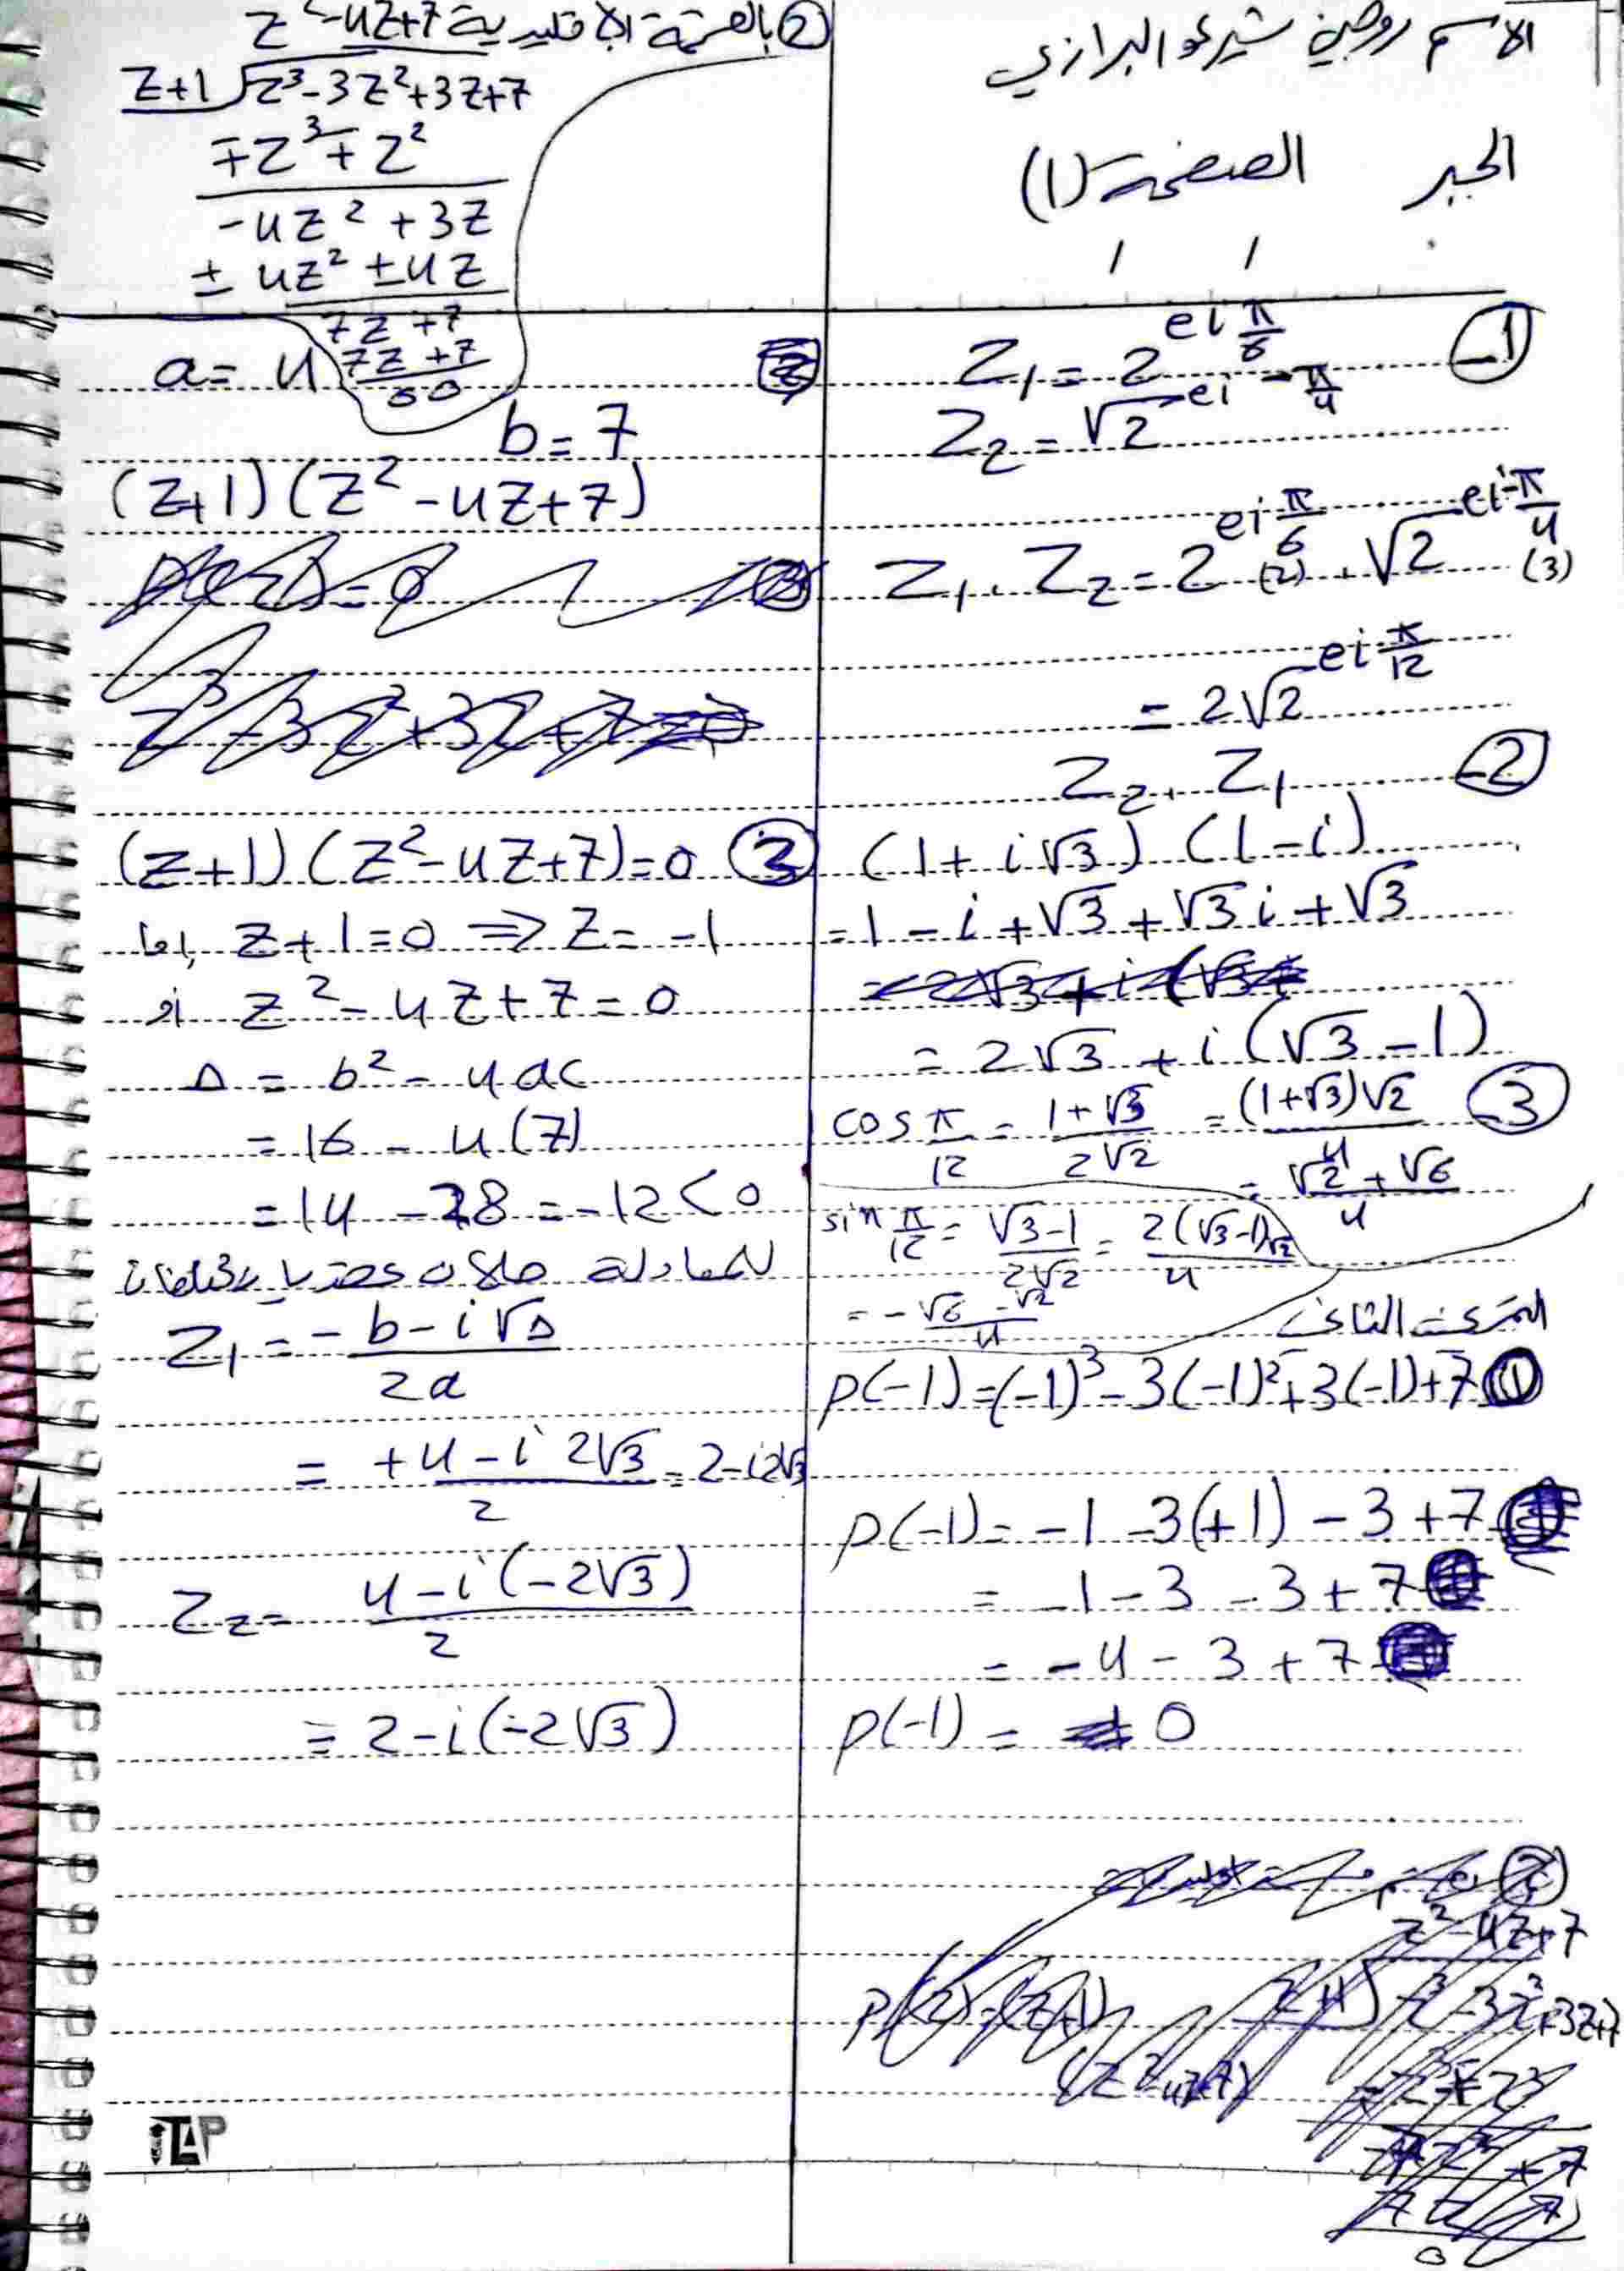 الاسم روجين شيرو البرازي
الجبر الصفحة (1)
1- Z₁ = 2^{ei π/6}
Z₂ = √2^{ei -π/4}
Z₁ . Z₂ = 2^{ei π/6 (2)} . √2^{ei -π/4 (3)}
= 2√2^{ei π/12}
2- Z₂ . Z₁
(1 + i√3) (1 - i)
= 1 - i + √3 + √3 i + √3
= 2√3 + i (√3 - 1)
3- cos π/12 = (1 + √3)/(2√2) = ((1+√3)√2)/4
= (√2 + √6)/4
sin π/12 = (√3 - 1)/(2√2) = (2(√3 - 1)√2)/4
= - (√6 - √2)/4
التمرين الثاني
① p(-1) = (-1)³ - 3(-1)² + 3(-1) + 7
p(-1) = -1 - 3(+1) - 3 + 7
= -1 - 3 - 3 + 7
= -4 - 3 + 7
p(-1) = 0
② بالقسمة الاقليدية
z² - 4z + 7
z+1 √ z³ - 3z² + 3z + 7
∓z³ ∓ z²
-4z² + 3z
± 4z² ± 4z
7z + 7
7z + 7
00
a = 4
b = 7
(z+1) (z² - 4z + 7)
③ (z+1) (z² - 4z + 7) = 0
إما z + 1 = 0 ⇒ z = -1
أو z² - 4z + 7 = 0
Δ = b² - 4ac
= 16 - 4(7)
= 14 - 28 = -12 < 0
للمعادلة حلان
Z₁ = (-b - i√Δ)/2a
= (+4 - i 2√3)/2 = 2 - i2√3
Z₂ = (4 - i(-2√3))/2
= 2 - i(-2√3)
iTAP